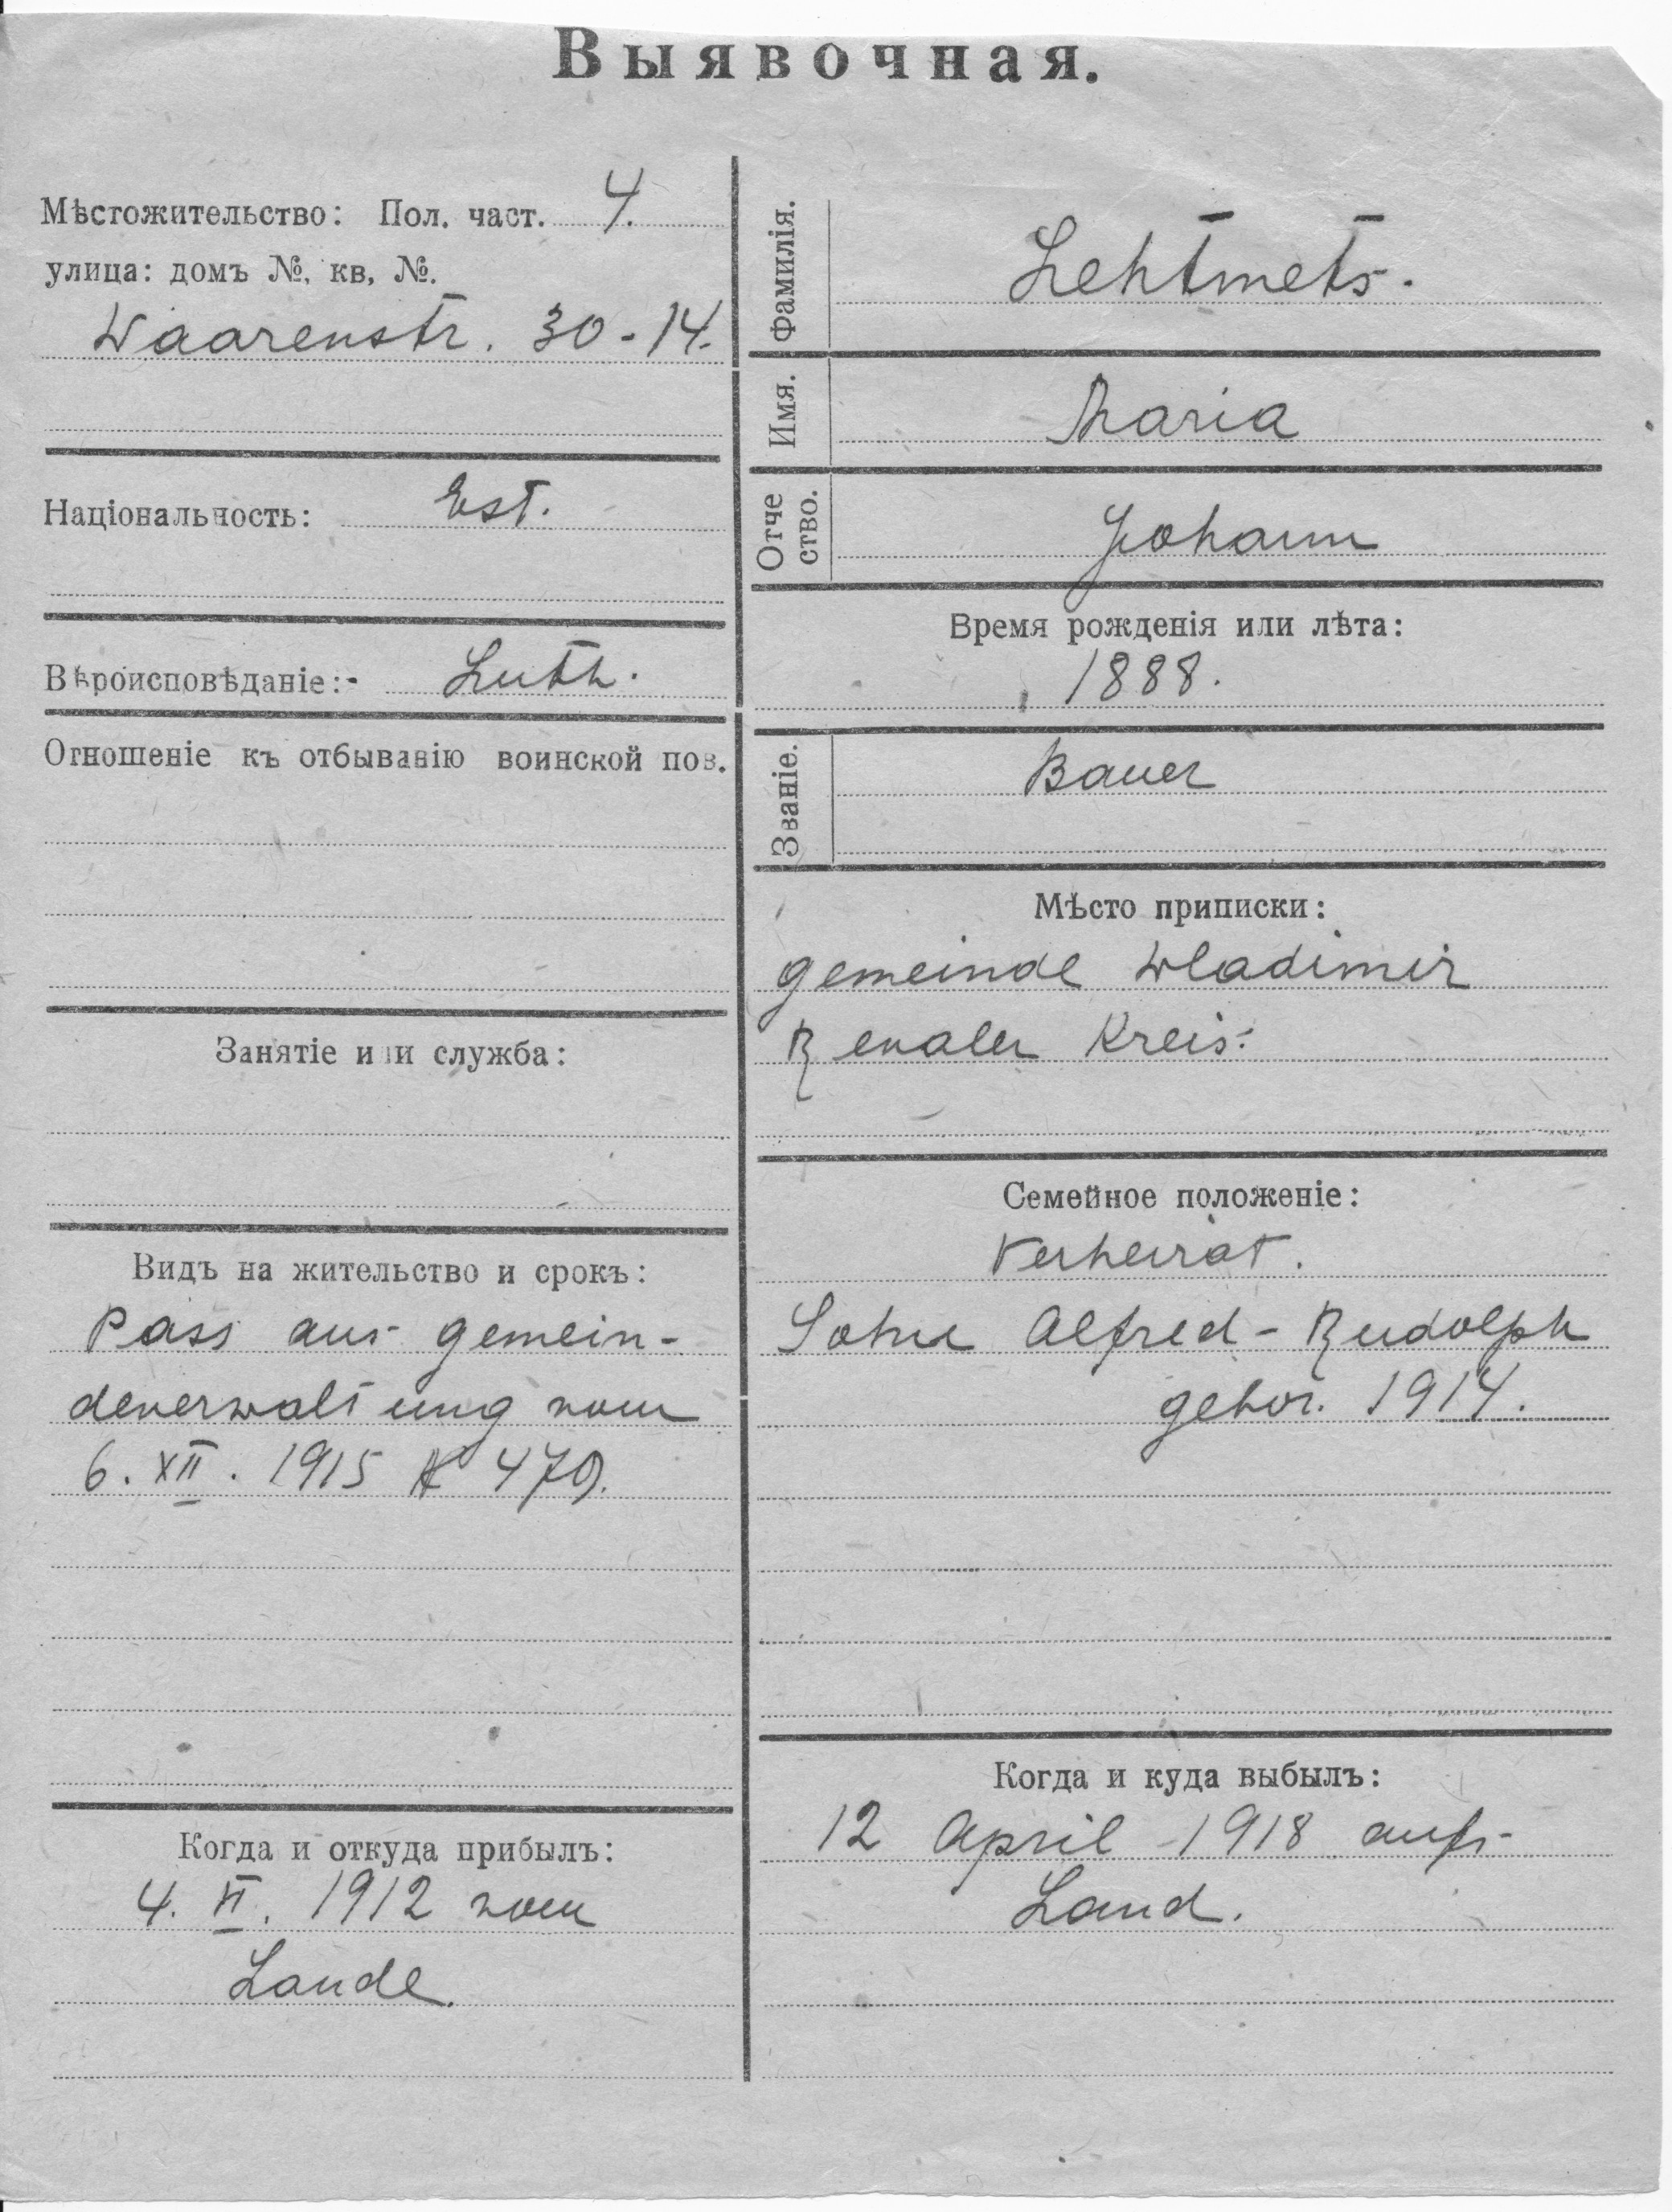 Выявочная.
Мѣстожительство: Пол. част. 4.
улица: домъ №, кв, №.
Waarenstr. 30-14.
Національность: Est.
Вѣроисповѣданіе:- Luth.
Отношеніе къ отбыванію воинской пов.
Занятіе или служба:
Видъ на жительство и срокъ:
Pass aus gemein-
deverwaltung vom
6. XII. 1915 № 479.
Когда и откуда прибылъ:
4. VI. 1912 vom
Lande.
Фамилія. Lehtmets.
Имя. Maria
Отче
ство. Johann
Время рожденія или лѣта:
1888.
Званіе. Bauer
Мѣсто приписки:
gemeinde Wladimir
Revaler Kreis.
Семейное положеніе:
Verheirat.
Sohn Alfred-Rudolph
gebor. 1914.
Когда и куда выбылъ:
12 April 1918 aufs
Land.